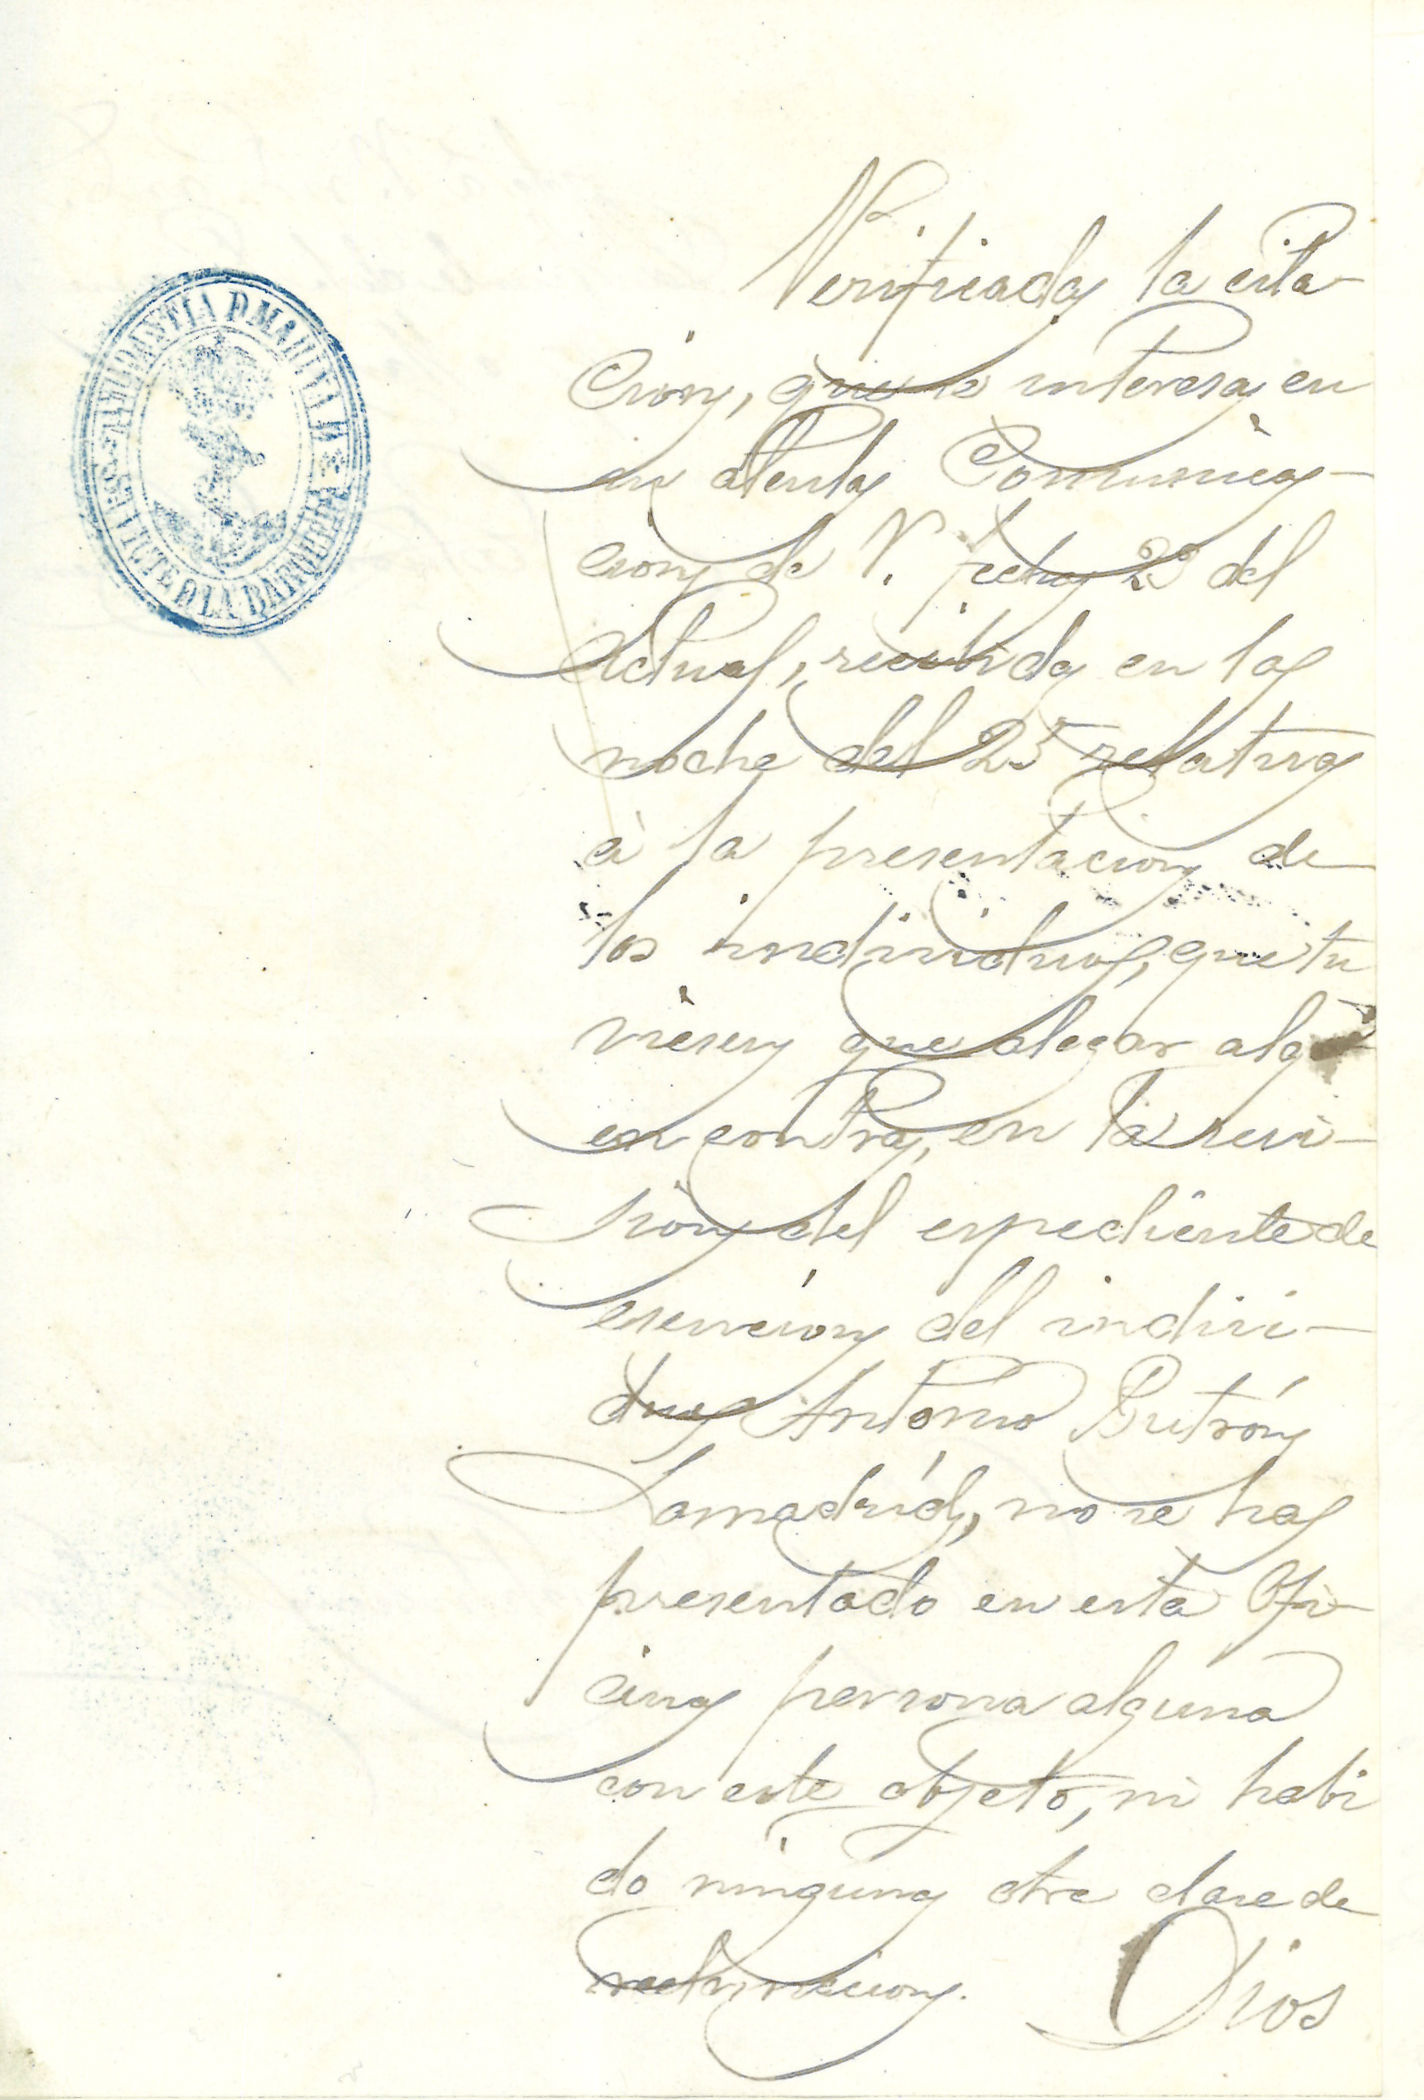 AYUDANTIA D. MARINA D.
S. VICTE D LA BARQUERA
Verificada la cita-
ción, que se interesa en
su atenta Comunica-
cion de V. fecha 2º del
actual, recibida en la
noche del 25 relativa
à la presentacion de
los individuos, que tu
viesen que alegar algo
en contra, en la revi-
sion del espediente de
esencion del indivi-
duo Antonio Butrón
Lamadríd, no se ha
presentado en esta Ofi-
cina persona alguna
con este objeto, ni habi
do ninguna otra clase de
reclamacion. Dios